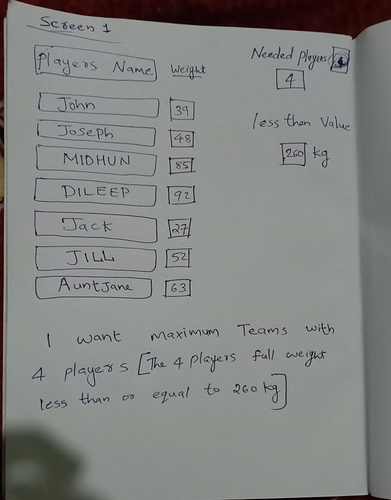 Screen 1
Players Name Weight
Needed players
4
John 39
Joseph 48
less than Value
MIDHUN 85
260 kg
DILEEP 92
Jack 27
JILL 52
AuntJane 63
I want maximum Teams with
4 players [The 4 players full weight
less than or equal to 260 kg]